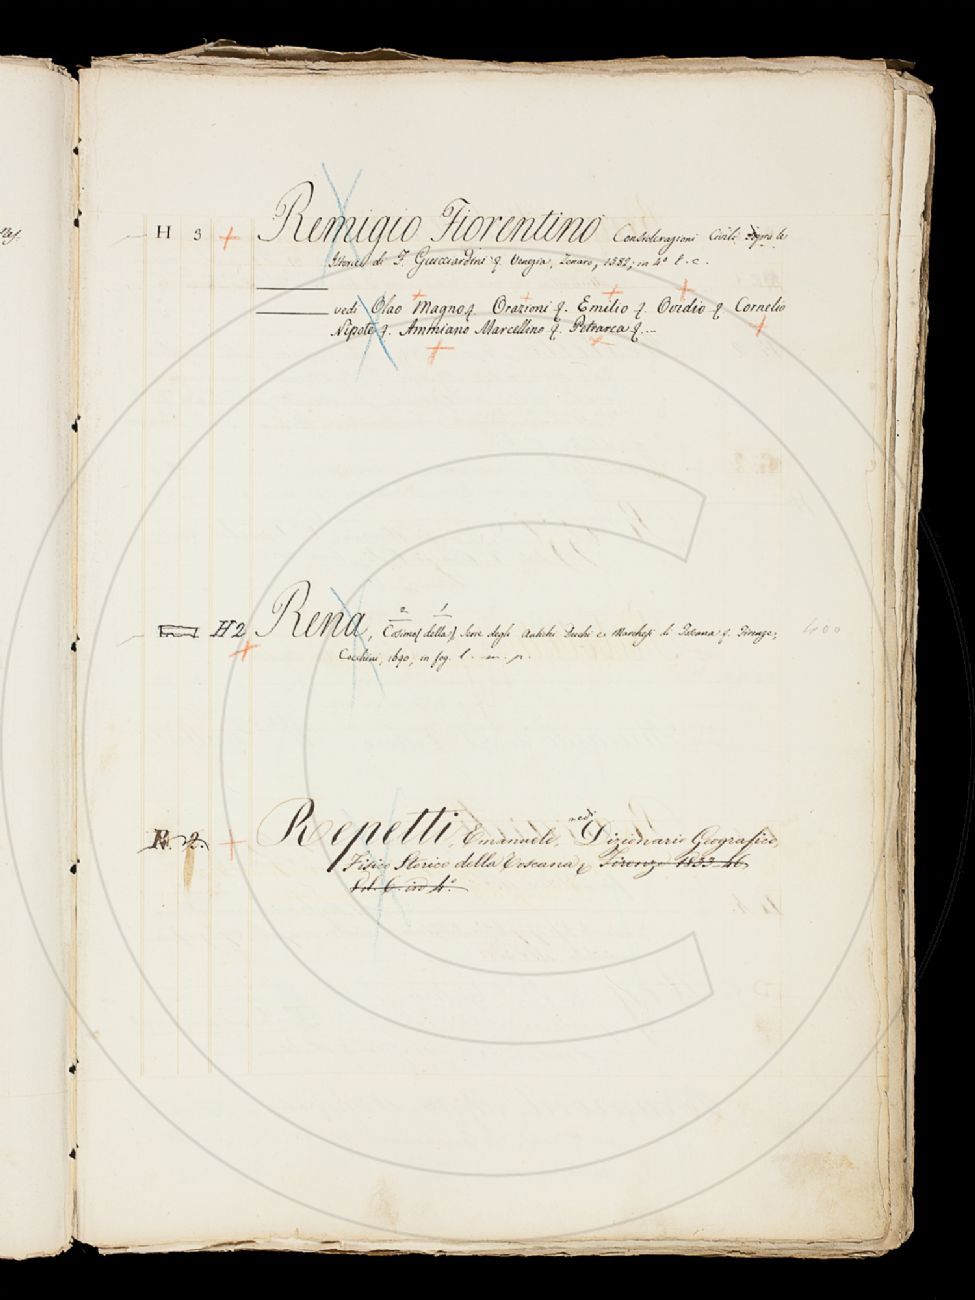 H 3 Remigio Fiorentino Considerazioni Civili sopra le
Istorie di F. Guicciardini &. Venezia, Zenaro, 1582, in 4° l. c.
vedi Olao Magno &. Orazioni &. Emilio &. Ovidio &. Cornelio
Nipote &. Ammiano Marcellino &. Petrarca &. —
H2 Rena, Cosimo (della) Serie degli Antichi Duchi e Marchesi di Toscana &. Firenze, 400
Cocchini, 1690, in fog. l. m. p.
R. 2. Repetti, Emanuele, vedi Dizionario Geografico,
Fisico Storico della Toscana & Firenze 1833-46
Vol. 6. in 4°